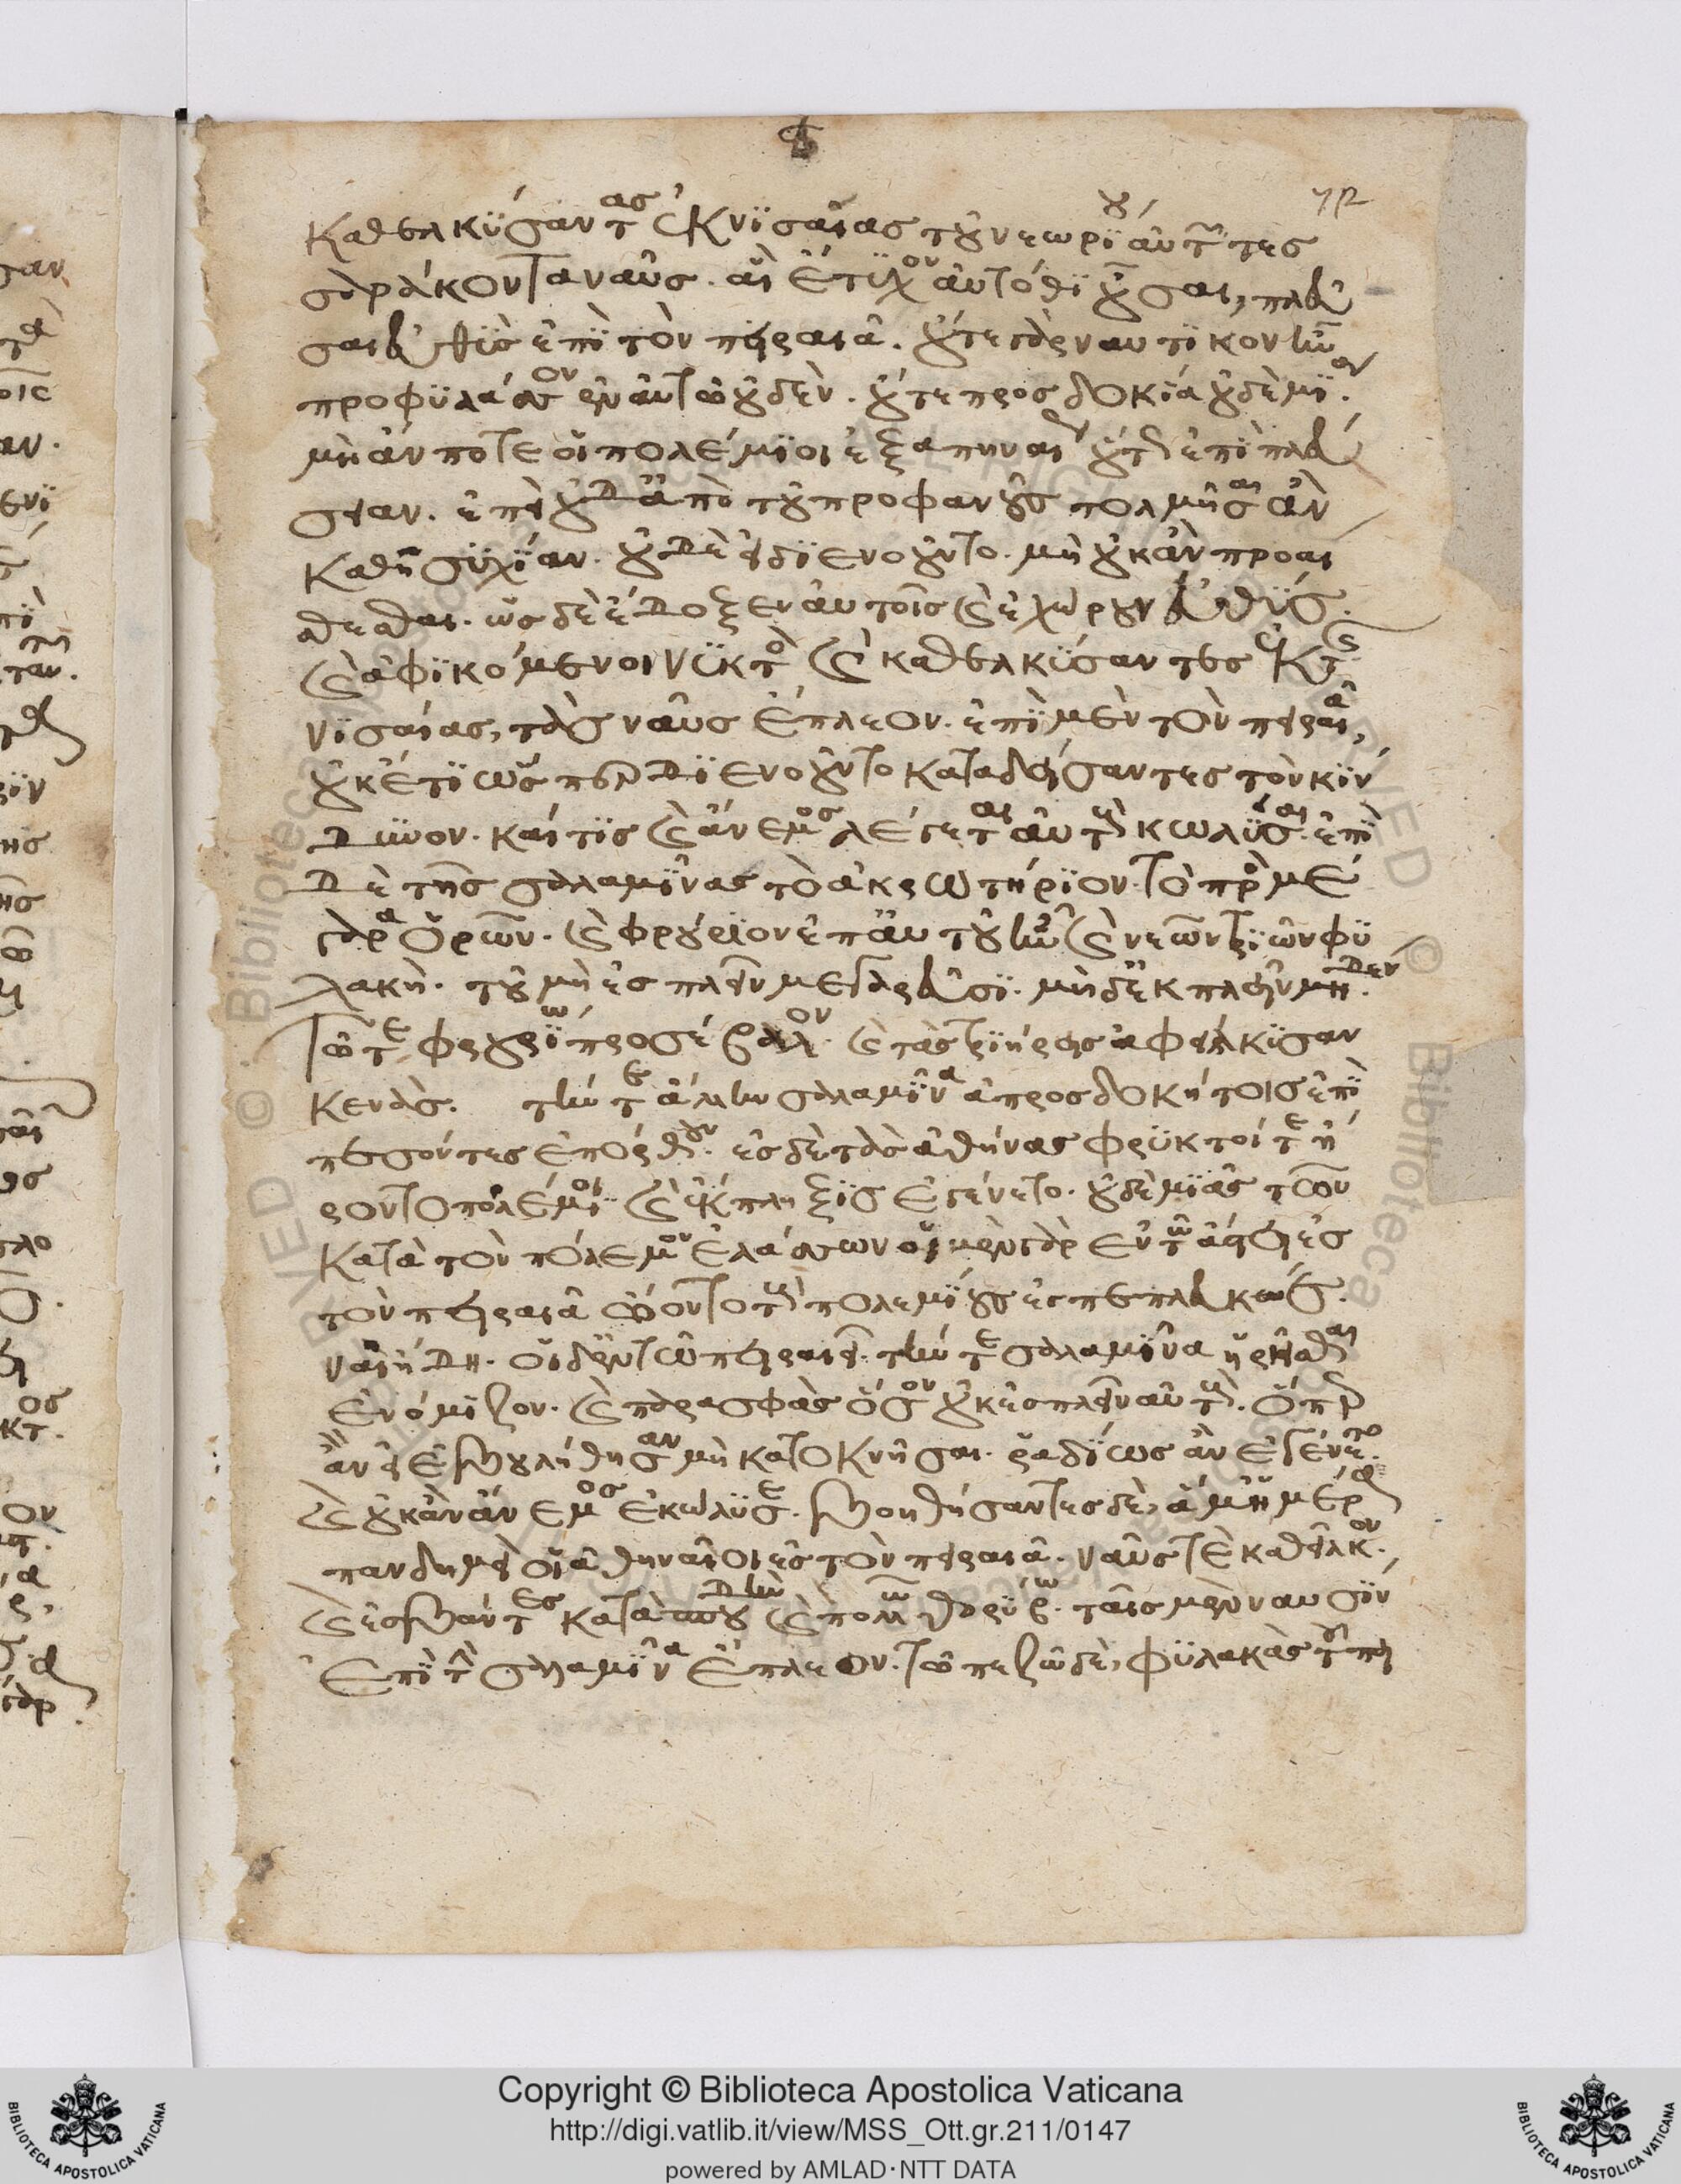 καθελκύσαντας ἐκ νισαίας τοῦ νεωρίου αὐτῶν τες
σαράκοντα ναῦς. αἳ ἔτυχον αὐτόθι οὖσαι, πλεῦ
σαι εὐθὺς ἐπὶ τὸν πειραιᾶ. οὔτε γὰρ ναυτικὸν ἦν
προφυλάσσον ἐν αὐτῷ οὐδὲν. οὔτε προσδοκία οὐδεμία.
μὴ ἄν ποτε οἱ πολέμιοι ἐξαπιναίως οὕτως ἐπιπλεύ
σειαν. ἐπεὶ οὐδ' ἀπὸ τοῦ προφανοῦς τολμῆσαι ἂν
καθ' ἡσυχίαν. οὐδὲ εἰ διενοοῦντο. μὴ οὐκ ἂν προαι
σθεσθαι. ὡς δὲ ἔδοξεν αὐτοῖς καὶ ἐχώρουν εὐθύς.
καὶ ἀφικόμενοι νυκτὸς καὶ καθελκύσαντες ἐκ τῆς
νισαίας, τὰς ναῦς ἔπλεον. ἐπὶ μὲν τὸν πειραιᾶ,
οὐκέτι ὥσπερ διενοοῦντο καταδείσαντες τὸν κίν
δυνον. καί τις καὶ ἄνεμος λέγεται αὐτοὺς κωλῦσαι. ἐπὶ
δὲ τῆς σαλαμῖνας τὸ ἀκρωτήριον. τὸ πρὸς μέ
γαρα ὁρῶν. καὶ φρούριον ἐπ' αὐτοῦ ἦν καὶ νεῶν τριῶν φυ
λακὴ. τοῦ μὴ ἐσπλεῖν μεγαρεῦσι. μηδ' ἐκπλεῖν μηδέν.
τῷ τε φρουρίῳ προσέβαλλον. καὶ τὰς τριήρεις ἀφείλκυσαν
κενὰς. τήν τε ἄλλην σαλαμῖνα ἀπροσδοκήτοις ἐπι
πεσόντες ἐπόρθουν. ἐς δὲ τὰς ἀθήνας φρυκτοί τε ἤ
ροντο πολέμιοι καὶ ἔκπληξις ἐγένετο. οὐδεμιᾶς τῶν
κατὰ τὸν πόλεμον ἐλάσσων οἱ μὲν γὰρ ἐν τῷ ἄστει ἐς
τὸν πειραιᾶ ᾤοντο τοὺς πολεμίους ἐσπεπλευκέναι.
ἤδη. οἱ δ' ἐν τῷ πειραιεῖ. τήν τε σαλαμῖνα ᾑρῆσθαι
ἐνόμιζον. καὶ παρὰ σφᾶς ὅσον οὐκ ἐσπλεῖν αὐτοὺς. ὅπερ
ἂν εἰ ἐβουλήθησαν μὴ κατοκνῆσαι. ῥᾳδίως ἂν ἐγένετο.
καὶ οὐκ ἂν ἄνεμος ἐκώλυσε. βοηθήσαντες δὲ, ἅμ' ἡμέρᾳ
πανδημεὶ οἱ ἀθηναῖοι ἐς τὸν πειραιᾶ. ναῦς τε καθεῖλκον.
καὶ ἐσβάντες κατὰ σπουδὴν καὶ πολλῷ θορύβῳ. ταῖς μὲν ναυσὶν
ἐπὶ τὴν σαλαμῖνα ἔπλεον. τῷ πεζῷ δὲ, φυλακὰς τοῦ πει
Copyright © Biblioteca Apostolica Vaticana
http://digi.vatlib.it/view/MSS_Ott.gr.211/0147
powered by AMLAD·NTT DATA